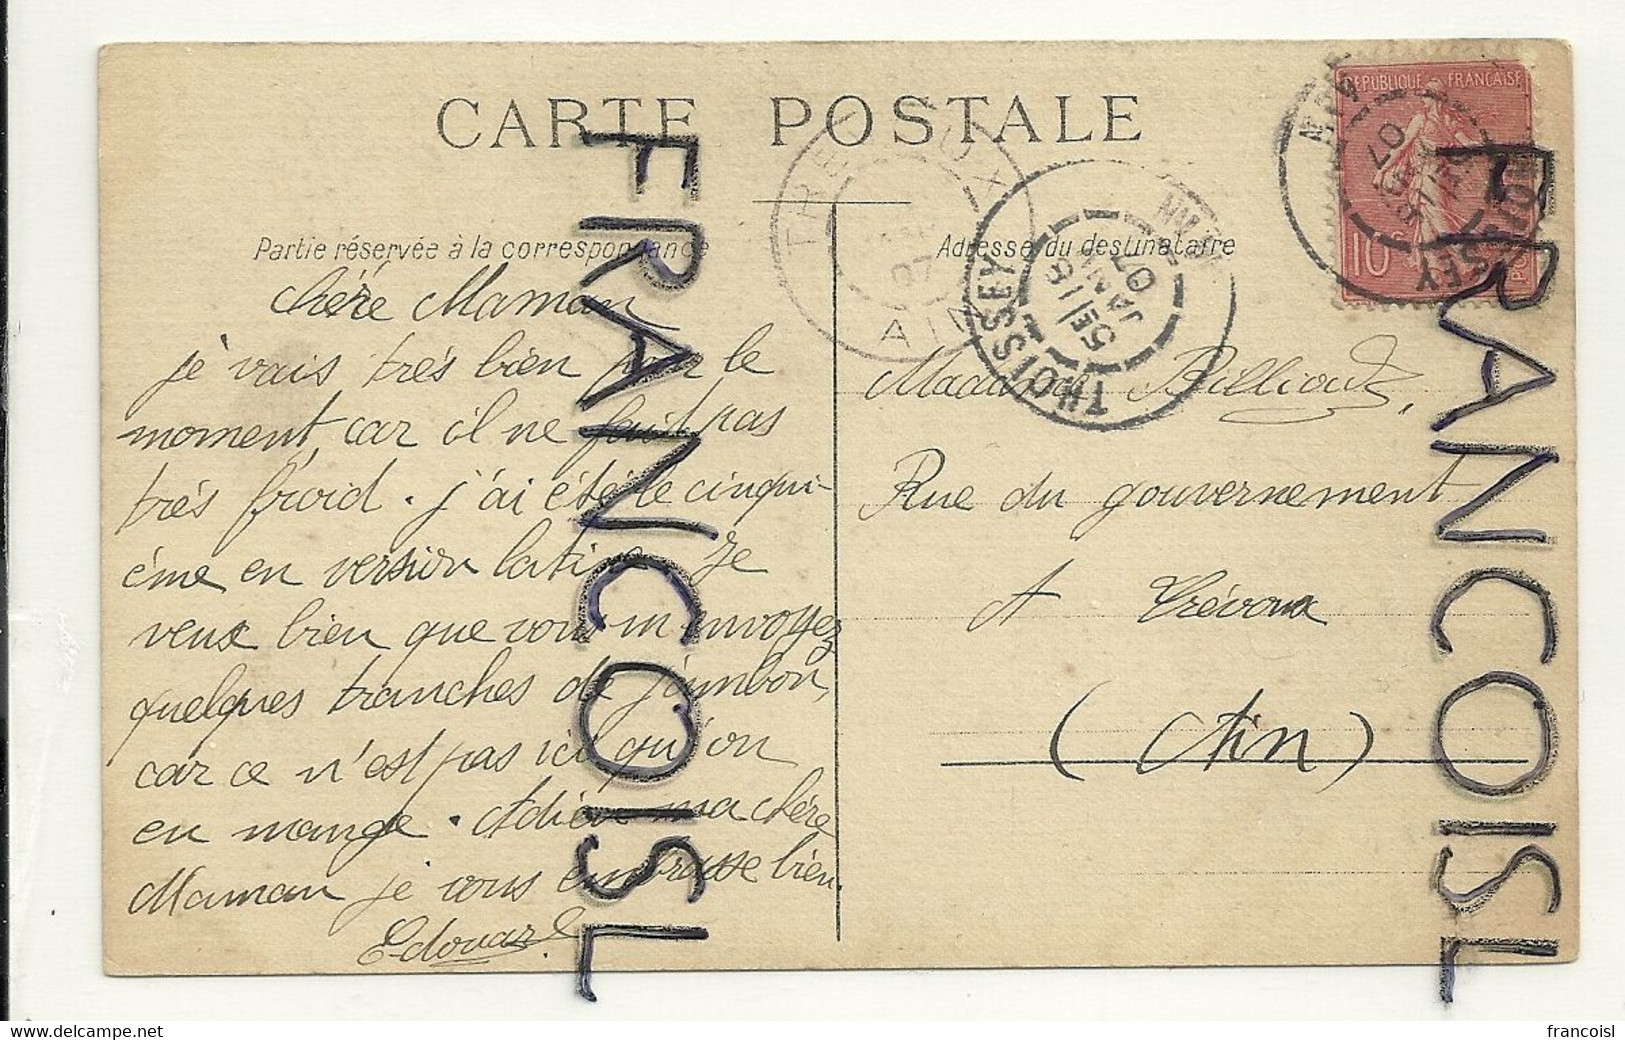 CARTE POSTALE
Partie réservée à la correspondance
Chère Maman
je vais très bien pour le
moment, car il ne fait pas
très froid. j'ai été le cinqui-
ème en version latine Je
veux bien que vous m'envoyez
quelques tranches de jambon,
car ce n'est pas ici qu'on
en mange. Adieu ma chère
Maman je vous embrasse bien.
Edouard
Adresse du destinataire
Madame Billioud,
Rue du gouvernement
A Trévoux
(Ain)
RÉPUBLIQUE FRANÇAISE
10c
TRÉVOUX
07
AIN
THOISSEY
5E/15
JANV
07
THOISSEY
07
FRANCOISL
FRANCOISL
delcampe.net
francoisl